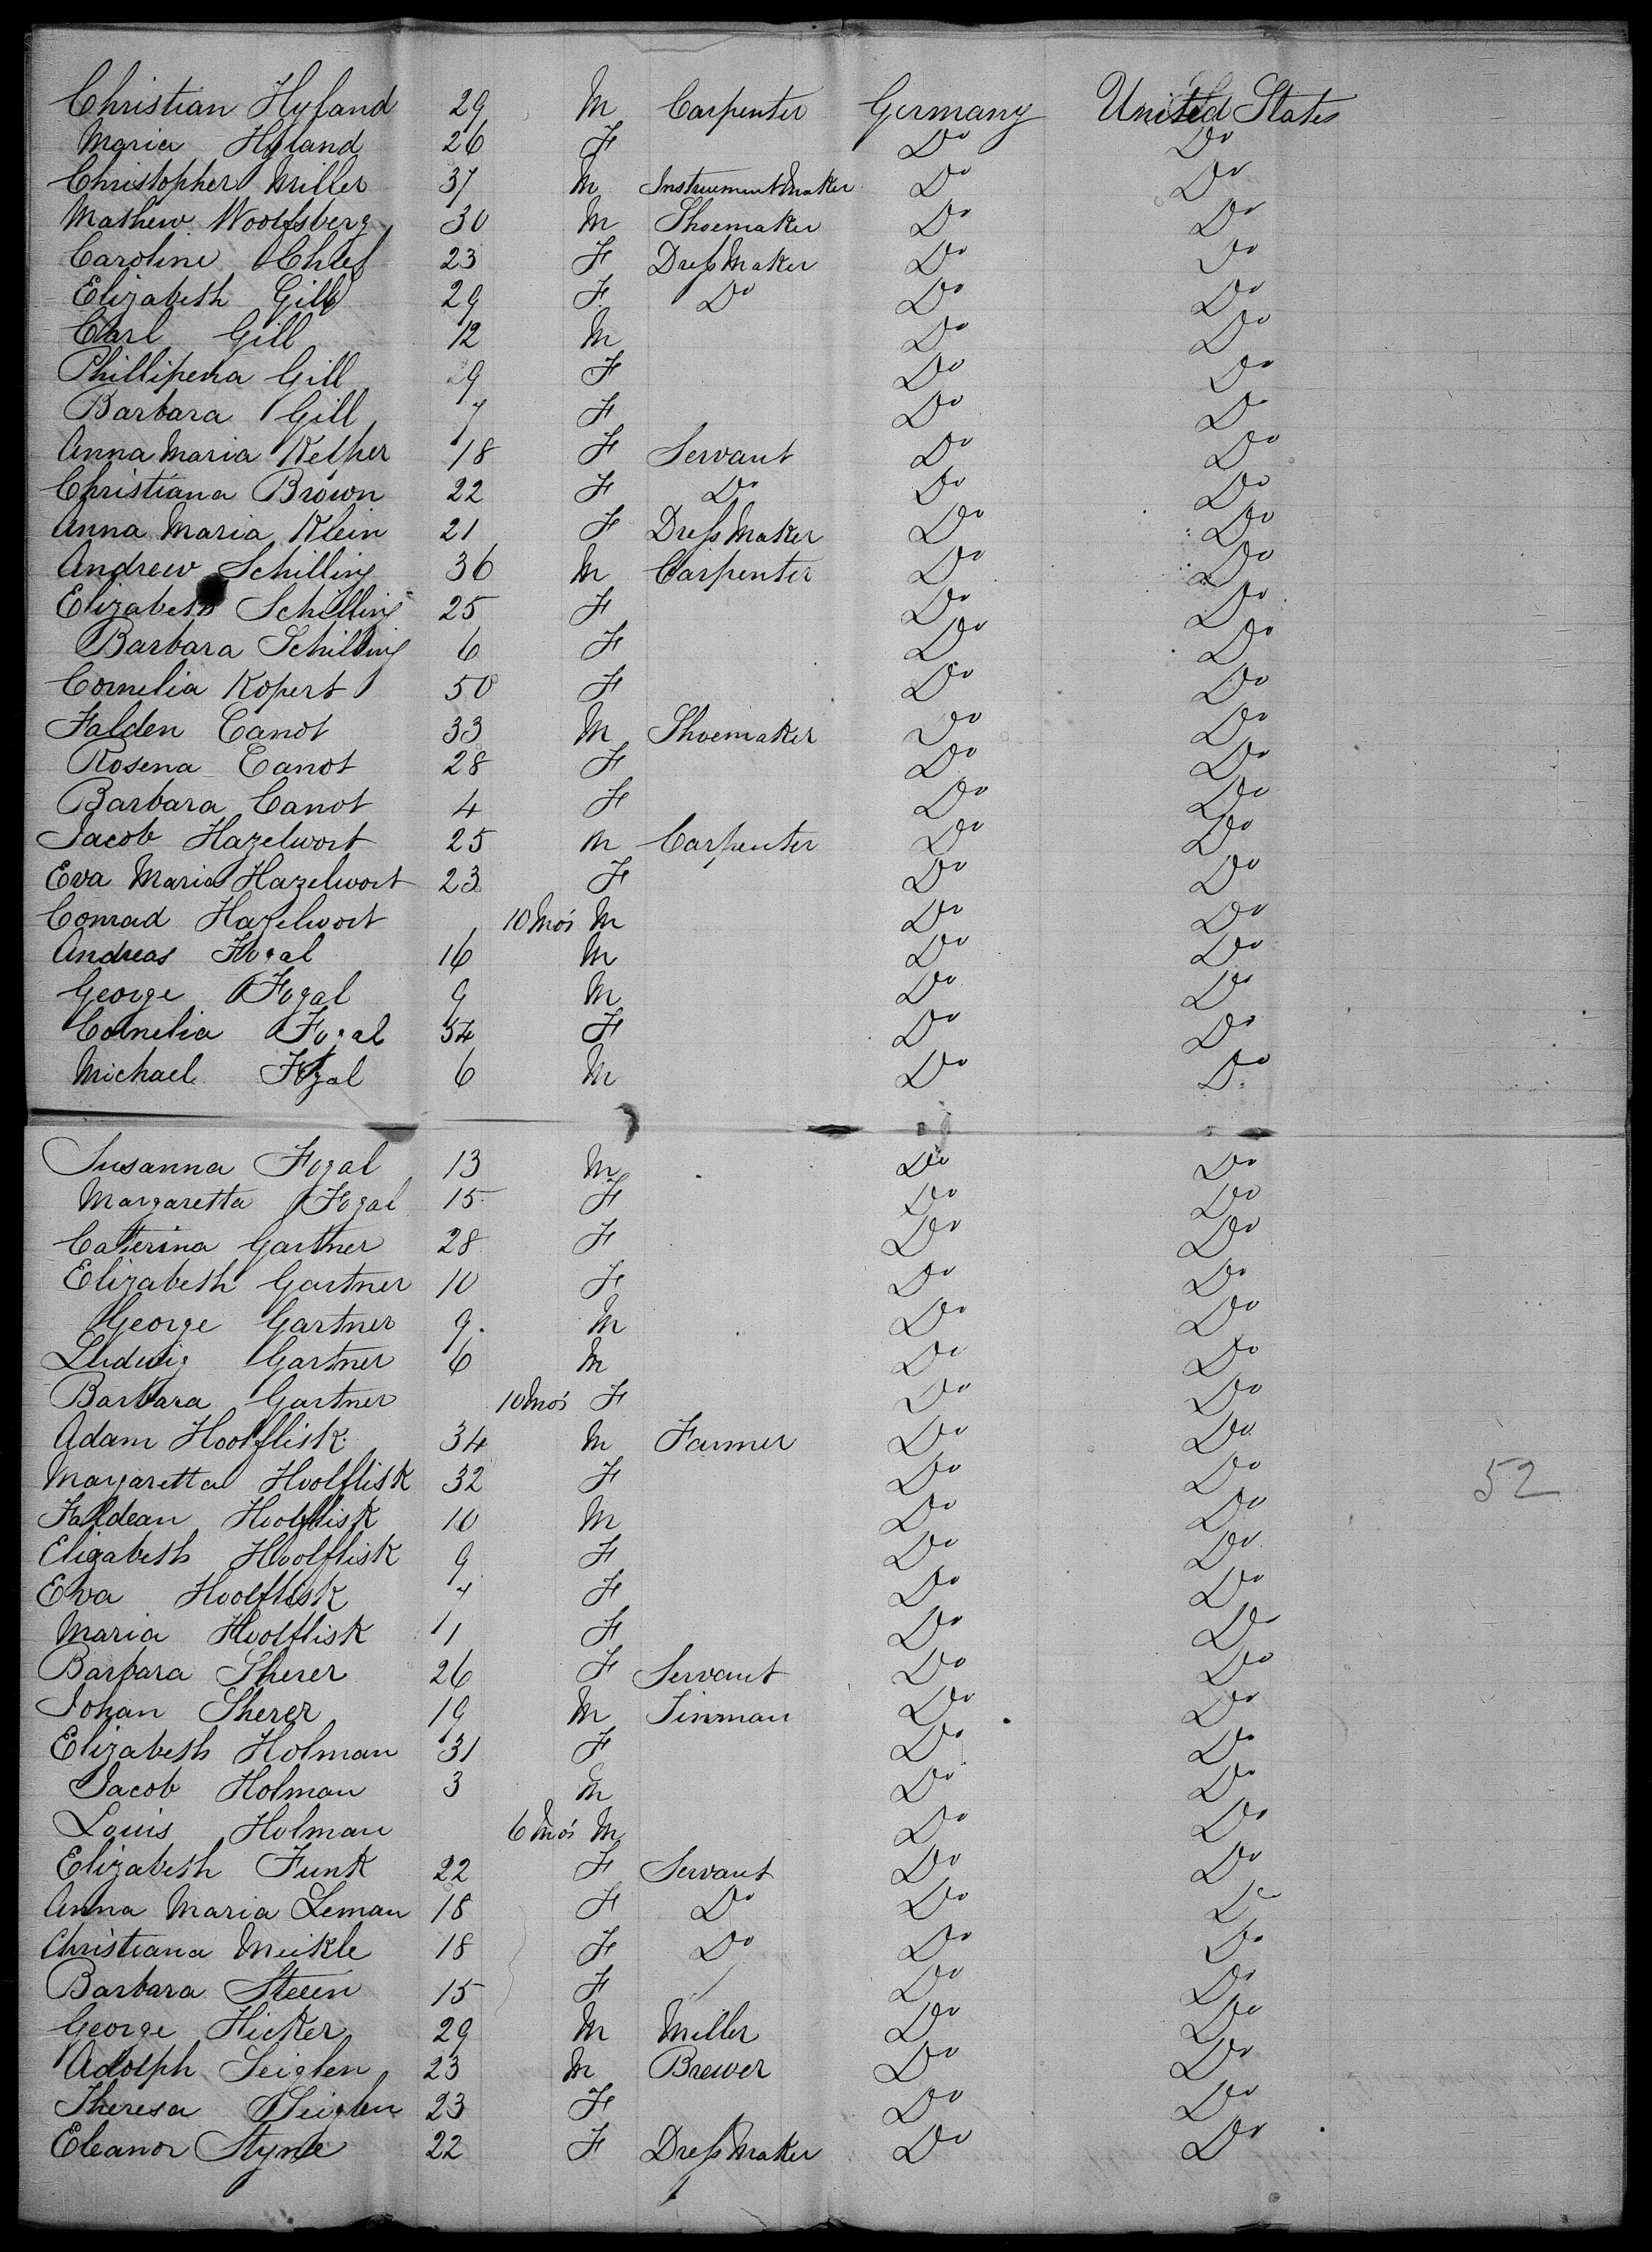 Christian Hyland 29 M Carpenter Germany United States
Maria Hyland 26 F Do Do
Christopher Miller 37 M Instruement Maker Do Do
Mathew Woolfsberg 30 M Shoemaker Do Do
Caroline 23 F Dress Maker Do Do
Elizabeth Gill 29 F Do Do Do
Carl Gill 12 M Do Do
Phillipena Gill 9 F Do Do
Barbara Gill 7 F Do Do
Anna Maria Kelher 18 F Servant Do Do
Christiana Brown 22 F Do Do Do
Anna Maria Klein 21 F Dress Maker Do Do
Andrew Schilling 36 M Carpenter Do Do
Elizabeth Schilling 25 F Do Do
Barbara Schilling 6 F Do Do
Cornelia Kopert 50 F Do Do
Falden Canot 33 M Shoemaker Do Do
Rosena Canot 28 F Do Do
Barbara Canot 4 F Do Do
Jacob Hazelwort 25 M Carpenter Do Do
Eva Maria Hazelwort 23 F Do Do
Conrad Hazelwort 10 Mo's M Do Do
Andreas Fogal 16 M Do Do
George Fogal 9 M Do Do
Cornelia Fogal 54 F Do Do
Michael Fogal 6 M Do Do
Susanna Fogal 13 M Do Do
Margaretta Fogal 15 F Do Do
Catterina Gartner 28 F Do Do
Elizabeth Gartner 10 F Do Do
George Gartner 9 M Do Do
Ludwig Gartner 6 M Do Do
Barbara Gartner 10 Mo's F Do Do
Adam Hoolflisk 34 M Farmer Do Do
Margaretta Hoolflisk 32 F Do Do
52
Faldean Hoolflisk 10 M Do Do
Elizabeth Hoolflisk 9 F Do Do
Eva Hoolflisk 4 F Do Do
Maria Hoolflisk 1 F Do Do
Barbara Sherer 26 F Servant Do Do
Johan Sherer 19 M Tinman Do Do
Elizabeth Holman 31 F Do Do
Jacob Holman 3 M Do Do
Louis Holman 6 Mo's M Do Do
Elizabeth Funk 22 F Servant Do Do
Anna Maria Leman 18 F Do Do Do
Christiana Meikle 18 F Do Do Do
Barbara Steen 15 F Do Do
George Hicker 29 M Miller Do Do
Adolph Seiglen 23 M Brewer Do Do
Theresa Seiglen 23 F Do Do
Eleanor Styne 22 F Dress Maker Do Do